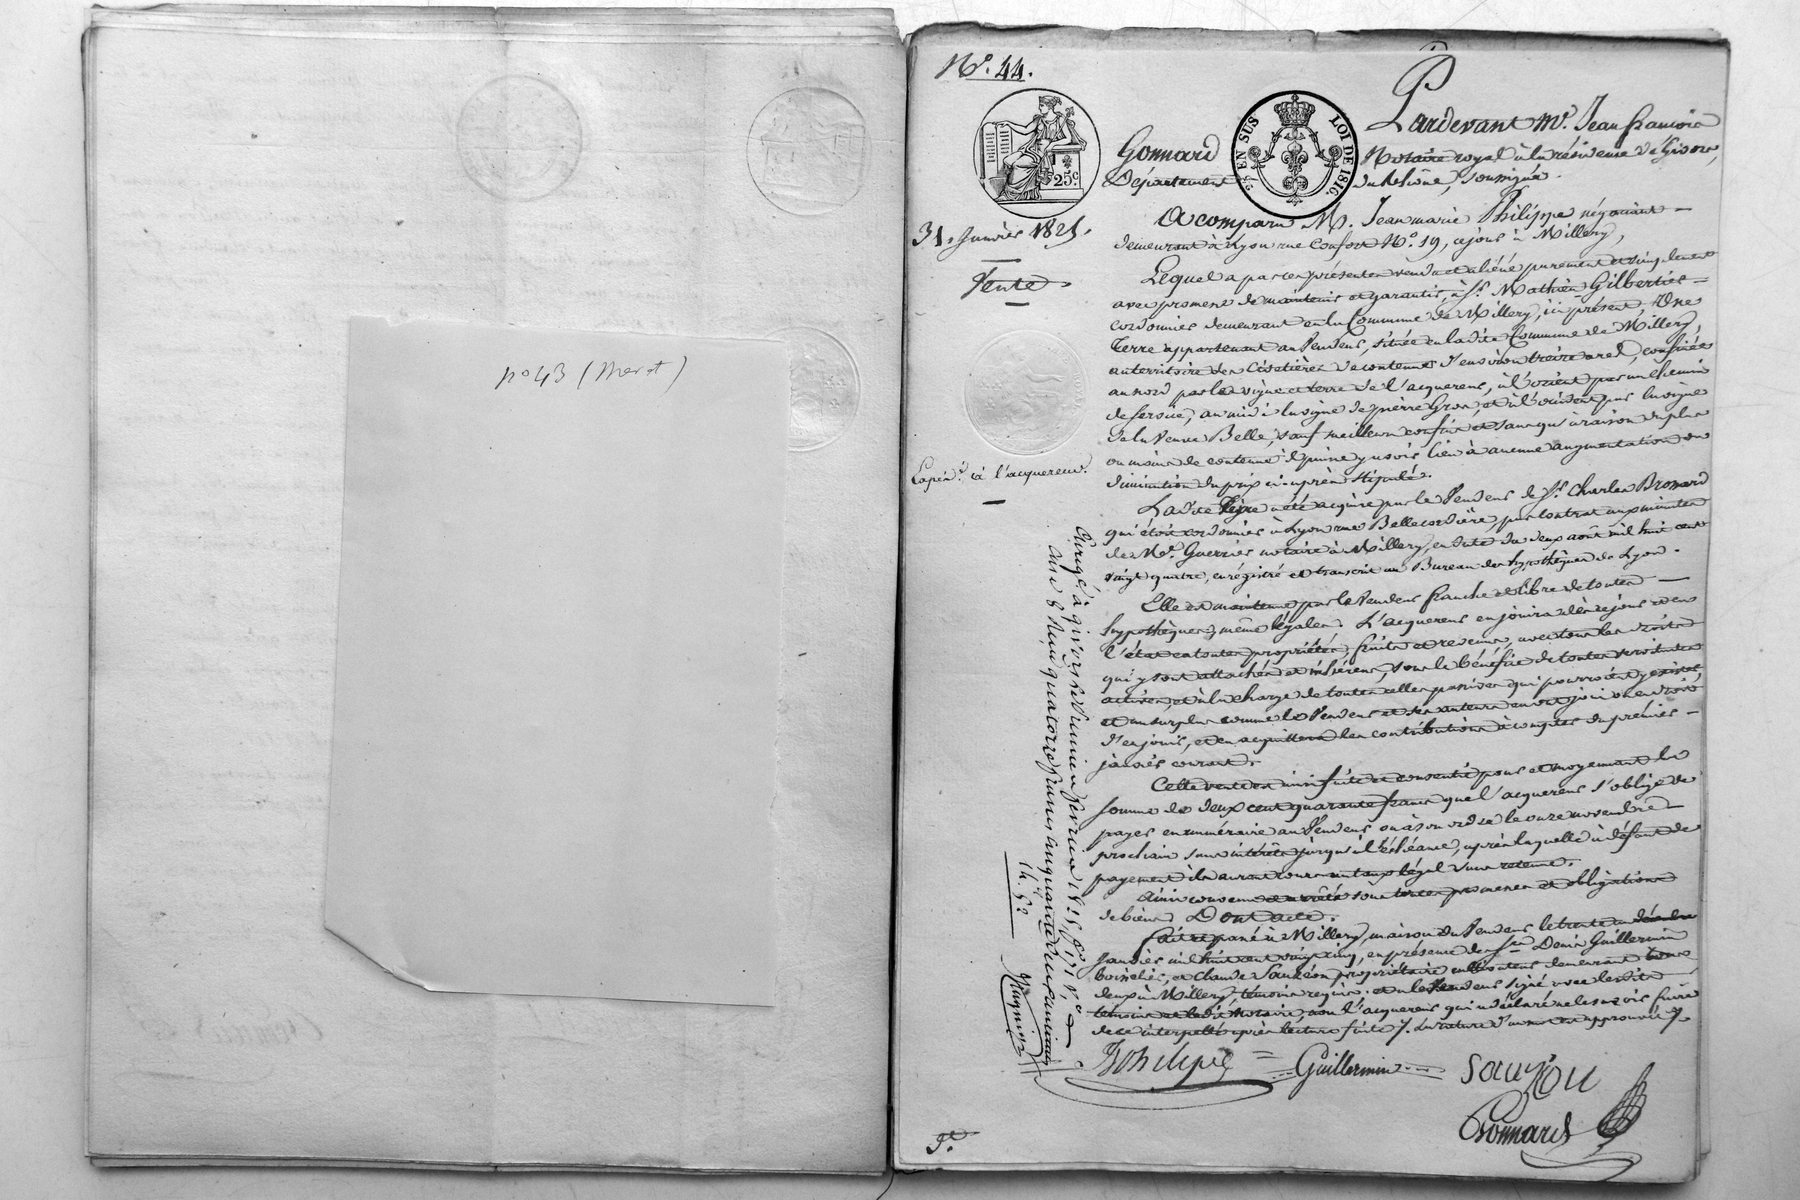 n° 43 (Merat)
N°. 44.
25c.
2c EN SUS
LOI DE 1816.
31. Janvier 1825.
Vente
Expéd.é à l'acquereur.
Pardevant Me. Jean françois
Gonnard Notaire royal à la résidence de Givors,
Département du Rhône, soussigné.
A comparu M. Jean marie Philippe négociant
demeurant à Lyon rue Confort N°. 19, ce jour à Millery,
Lequel a par ces présentes vendu et aliéné purement et simplement
avec promesse de maintenir et garantir, à Sr. Mathieu Gilbertier
cordonnier demeurant en la Commune de Millery, ici présent, Une
Terre appartenant au Vendeur, située en ladite Commune de Millery
au territoire des Cisetières de contenue d'environ treize ares, confinée
au nord par les vigne et terre de l'acquereur, à l'orient par un chemin
de service, au midi la vigne de pierre Gros, et à l'occident par la vigne
de la Veuve Belle, sauf meilleurs confins et sans qu'à raison du plus
ou moins de contenue il puisse y avoir lieu à aucune augmentation ou
diminution du prix ci-après stipulé.
Ladite Terre a été acquise par le Vendeur de Sr. Charles Brossard
qui étoit cordonnier à Lyon rue Bellecordière, par contrat aux minutes
de Me. Guerrier notaire à Millery, en date du deux août mil huit cent
vingt quatre, enrégistré et transcrit au Bureau des hypothèques de Lyon.
Elle est maintenue par le Vendeur franche et libre de toutes
hypothèques, même légales. L'acquereur en jouira dès ce jour et en
l'état en toutes propriétés, fruits et revenus, avec tous les droits
qui y sont attachés et inhérens, sous le bénéfice de toutes servitudes
actives, et à la charge de toutes celles passives qui pourroient y exister,
et au surplus comme le Vendeur et ses auteurs en ont joui ou en droit
d'en jouir, et en acquittera les contributions à compter du prémier
janvier courant.
Cette vente est ainsi faite et consentie pour et moyennant la
somme de deux cent quarante francs que l'acquereur s'oblige de
payer en numéraire au Vendeur ou à son ordre le onze novembre
prochain sans intérêts jusqu'à l'échéance, après laquelle à défaut de
payement ils auront cours au taux légal sans retenue.
Ainsi convenu et arrêté sous toutes promesses et obligations
de biens Dont acte.
Fait et passé à Millery, maison du Vendeur le trente un
Janvier mil huit cent vingt cinq, en présence des Srs. Denis Guillermin
boucher, et Claude Sauzéon propriétaire cultivateur demeurant tous
deux à Millery, témoins requis. et le Vendeur signé avec lesdits
témoins et ledit Notaire, non l'acquereur qui a déclaré ne le savoir faire
de ce interpellé après lecture faite. La rature d'un mot est approuvée.
Philippe
Guillermin
Sauzéon
Gonnard
Enregé à givors le premier fevrier 1825 fo. 171 Vo
Reçu quatorze francs cinquante deux centimes
14.f 52
Magnin